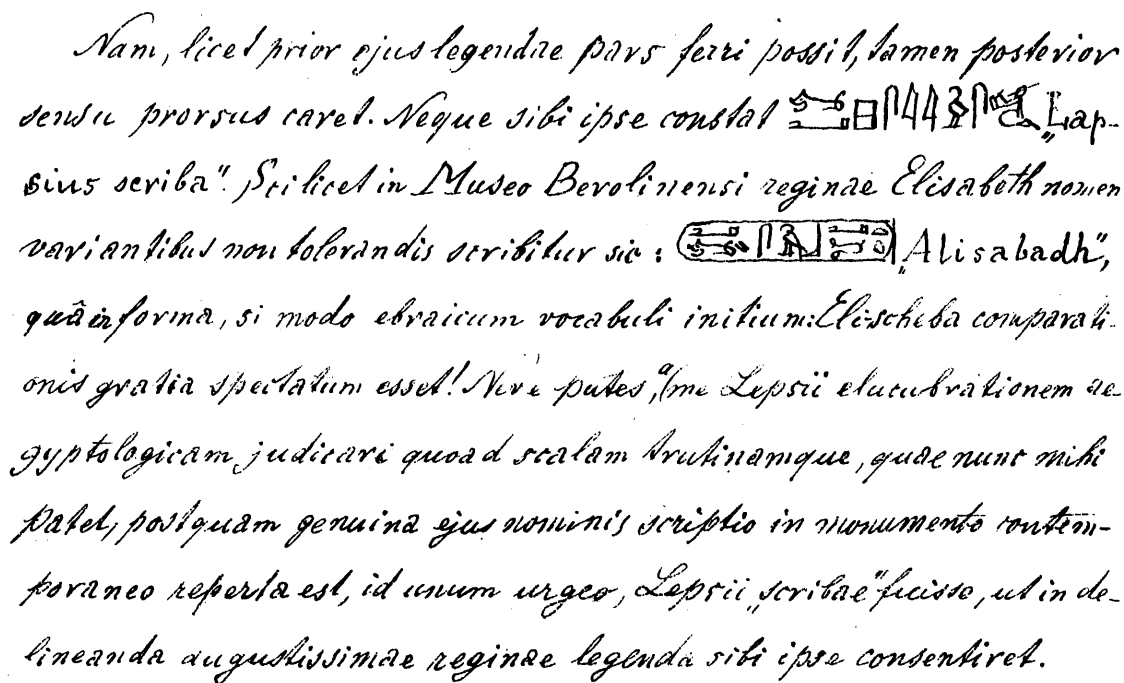 Nam, licet prior ejus legendae pars ferri possit, tamen posterior
sensu prorsus caret. Neque sibi ipse constat „Lap-
sius scriba“. Scilicet in Museo Berolinensi reginae Elisabeth nomen
variantibus non tolerandis scribitur sic: „Alisabadh“,
quâ in forma, si modo ebraicum vocabuli initium: Elischeba comparati-
onis gratia spectatum esset! Neve putes, a me Lepsii elucubrationem ae-
gyptologicam judicari quoad scalam trutinamque, quae nunc mihi
patet, postquam genuina ejus nominis scriptio in monumento contem-
poraneo reperta est, id unum urgeo, Lepsii „scribae“ fuisse, ut in de-
lineanda augustissimae reginae legenda sibi ipse consentiret.